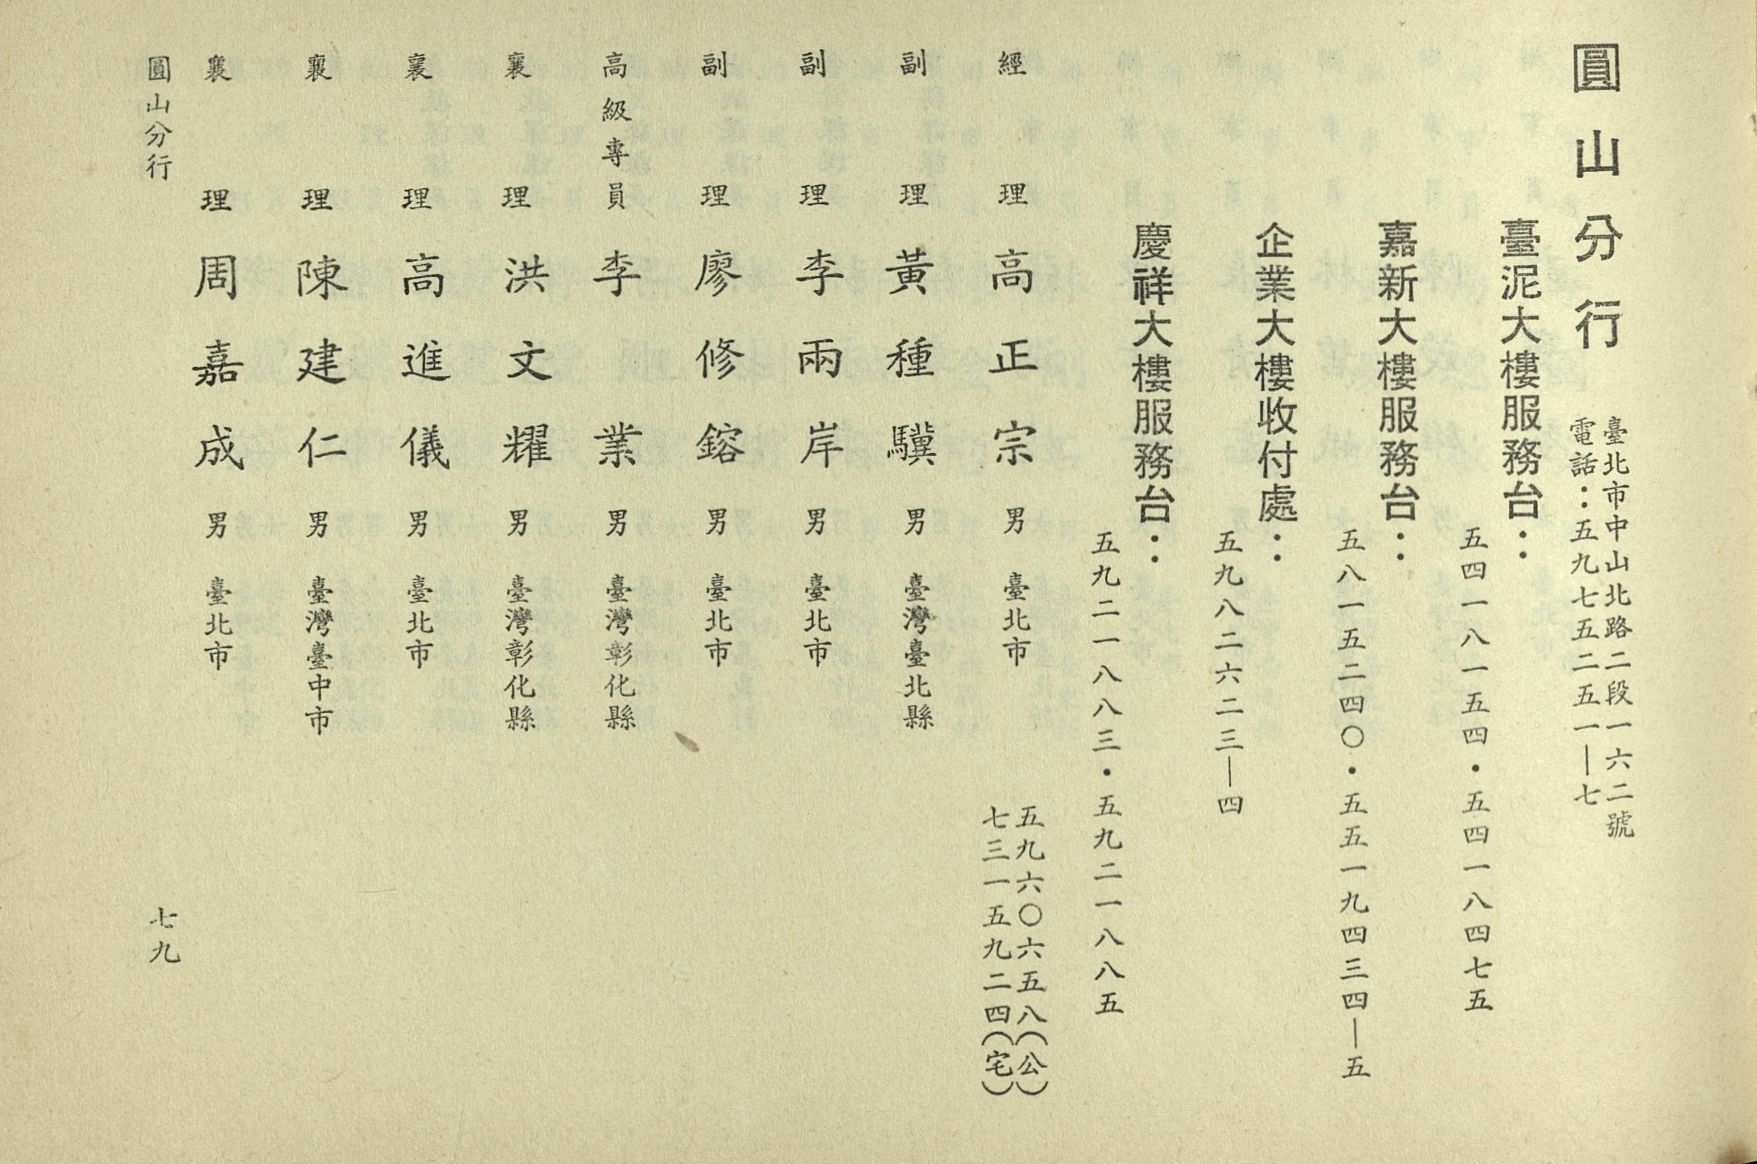 圓山分行
臺北市中山北路二段一六二號
電話：五九七五二五一—七
臺泥大樓服務台：
五四一八一五四・五四一八四七五
嘉新大樓服務台：
五八一五二四〇・五五一九四三四—五
企業大樓收付處：
五九八二六二三—四
慶祥大樓服務台：
五九二一八八三・五九二一八八五
經理 高正宗 男 臺北市
五九六〇六五八（公）
七三一五九二四（宅）
副理 黃種驥 男 臺灣臺北縣
副理 李兩岸 男 臺北市
副理 廖修鎔 男 臺北市
高級專員 李業 男 臺灣彰化縣
襄理 洪文耀 男 臺灣彰化縣
襄理 高進儀 男 臺北市
襄理 陳建仁 男 臺灣臺中市
襄理 周嘉成 男 臺北市
圓山分行
七九